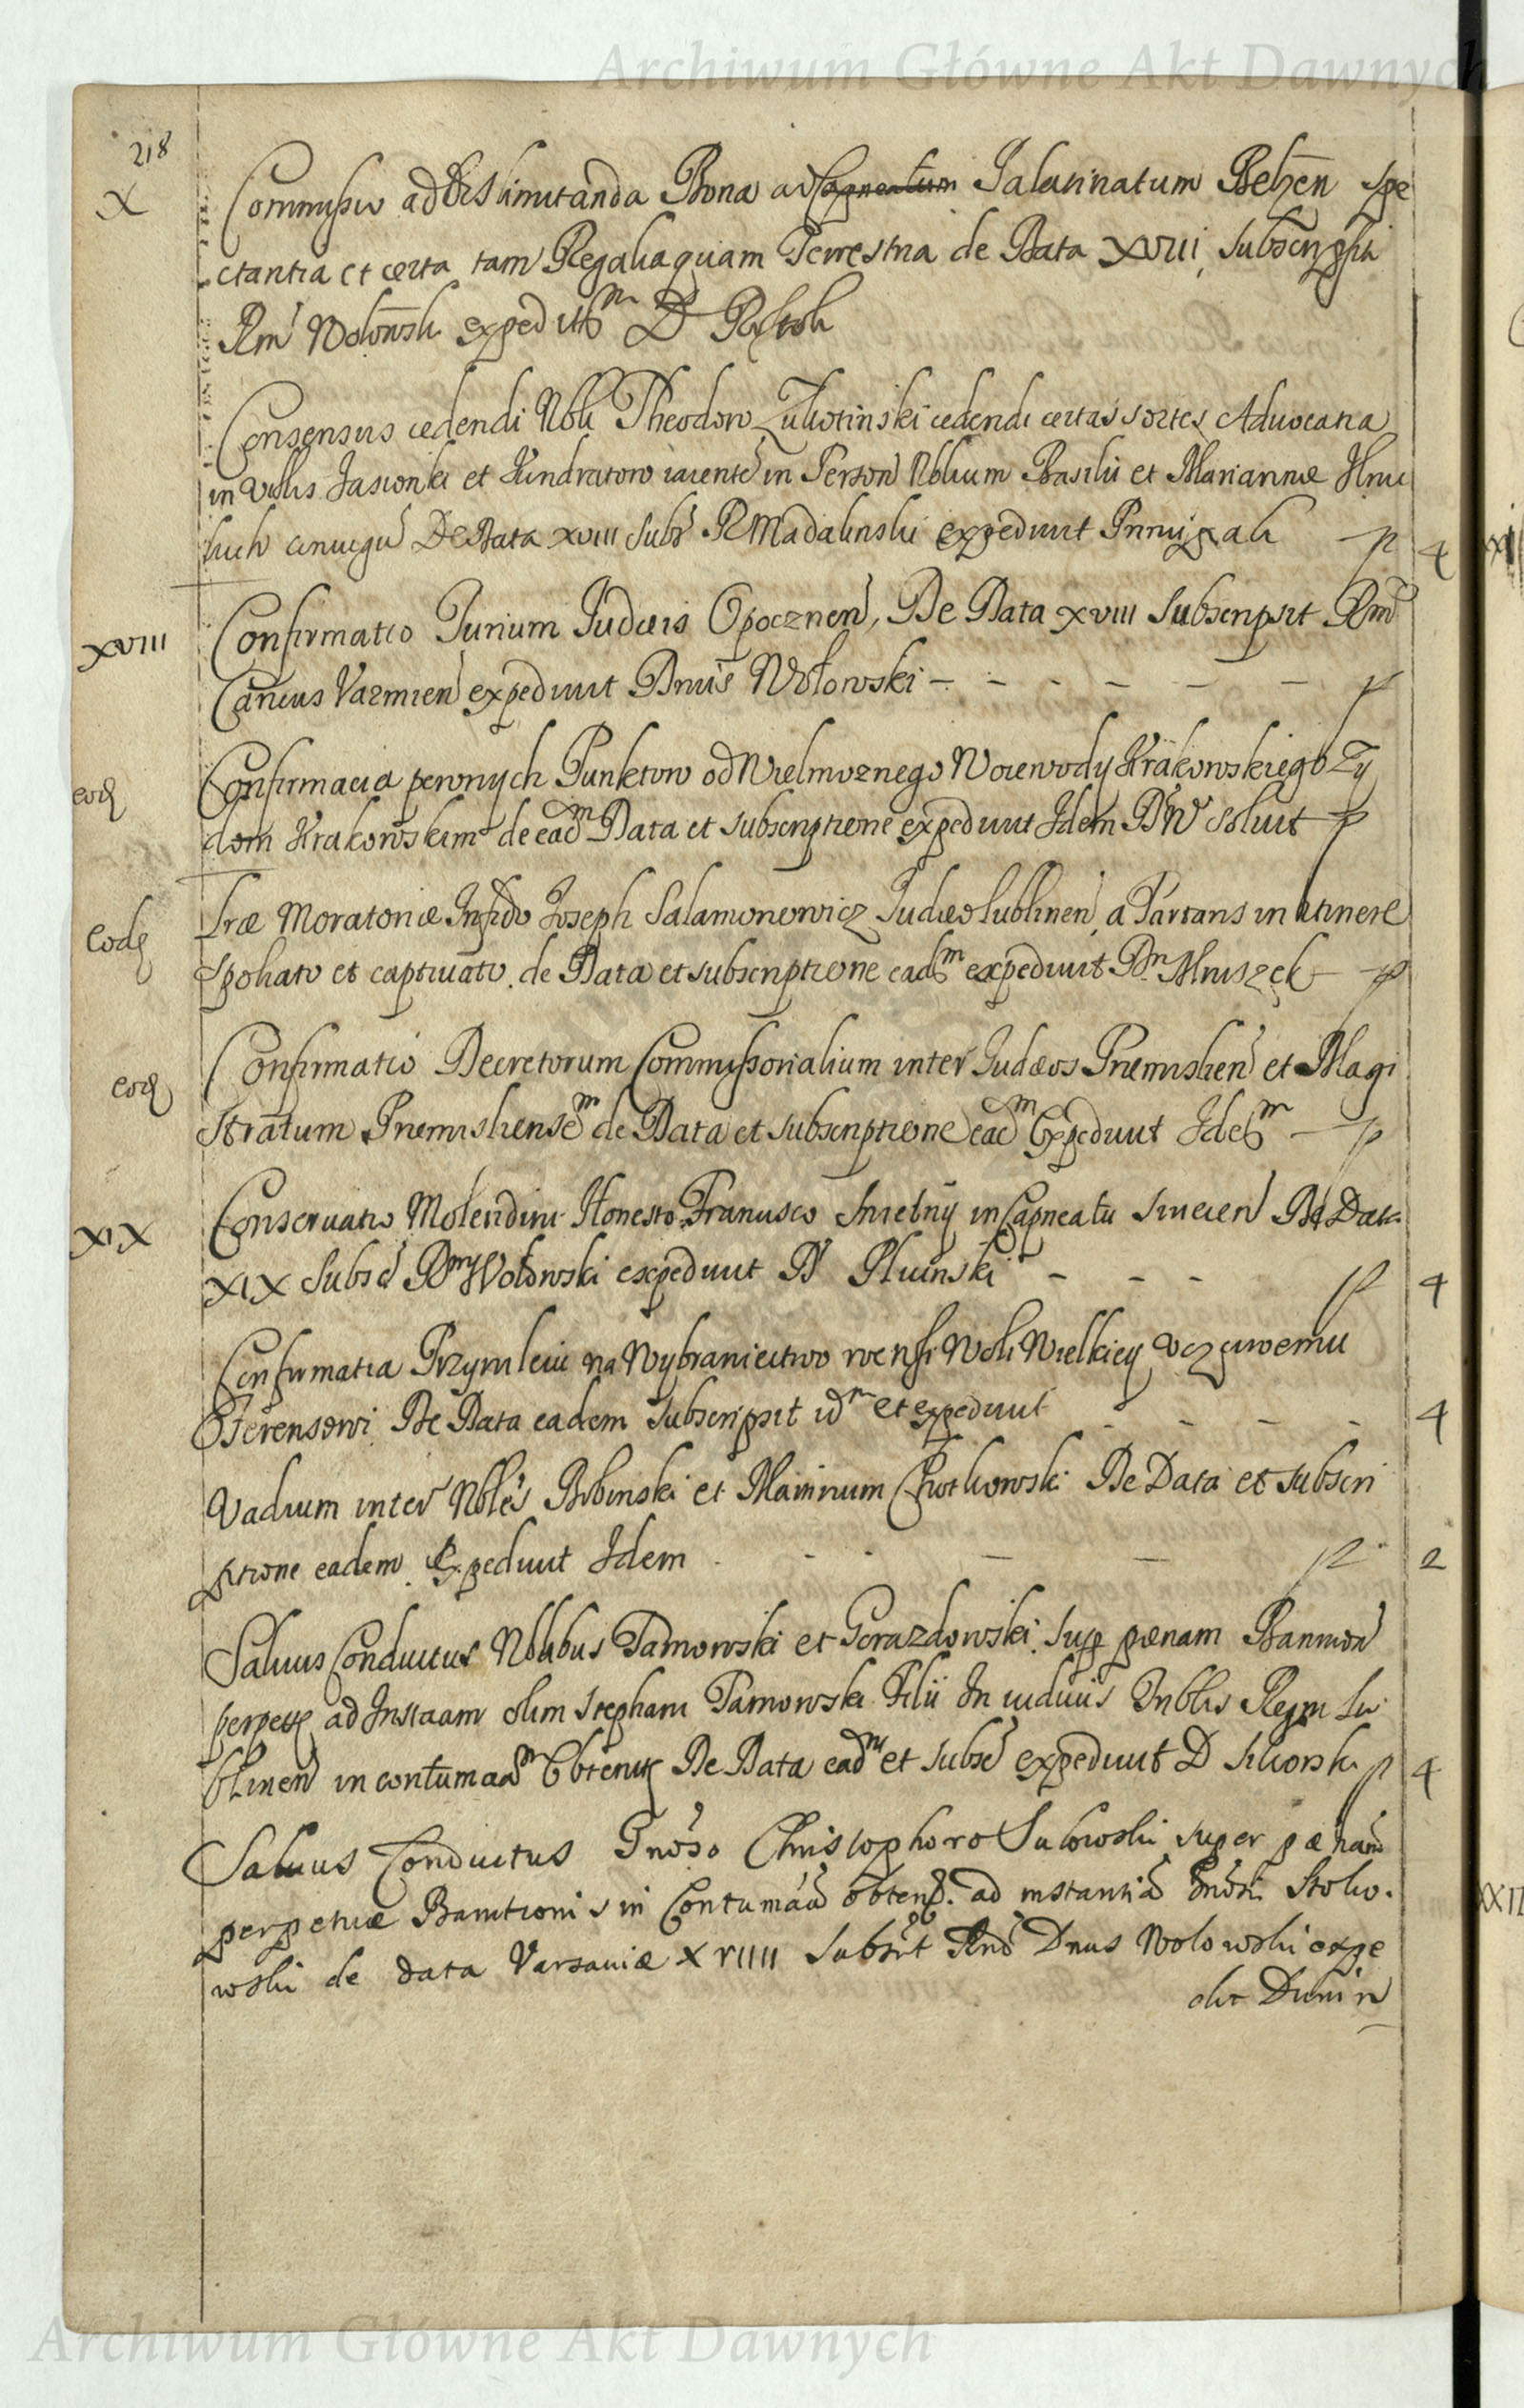 Archiwum Główne Akt Dawnych
218
X
Commissio ad dislimitanda Bona ad Capneatum Palatinatum Belzen spe
ctantia et certa tam Regalia quam Terrestria de Data XVIII subscripsit
Rm Wołowski expedit D
Consensus cedendi Nbli Theodoro Zuliotinski cedendi certas sortes Advocatia
in Villis Jasionki et Kundratow iacente in Person Nblium Basilii et Mariannæ
coniugu De Data XVIII Subs R Madalinski expediuit p 4
XVIII Confirmatio Jurium Judæis Opocznen, De Data XVIII Subscripsit Rm
Cancus Varmien expediuit Dnus Wołowski - - - - - - p
eod Confirmacia pewnych Punktow od Wielmoznego Woiewody Krakowskiego Zy
dom Krakowskim de eadm Data et subscriptione expediuit Idem DW soluit p
eod Lræ Moratoriæ Infido Joseph Salamonowicz Judæo Lublinen, a Partaris in itinere
spoliato et captiuato. de Data et subscriptione eadm expediuit Dn Hruszek p
eod Confirmatio Decretorum Commissorialium inter Judæos Præmislien et Magi
stratum Præmisliensem de Data et subscriptione eadm Expediuit Idem p
XIX Conseruatio Molendini Honesto Francisco in Capneatu De Data
XIX Subsc Rm Wołowski expediuit D Pluinski - - - p 4
Confirmatia Przywileiu na Wybraniectwo we wsi Woli Wielkiey Vczciwemu
De Data eadem subscripsit idm et expediuit - - - 4
Vadium inter Nbles Bibinski et Mannum De Data et subscri
ptione eadem. Expediuit Idem - - - - p 2
Saluus Conductus Nblibus Tarnowski et Gorazdowski sup pænam Bannion
perpetæ ad Instaam olim Stephani Tarnowski Filii In iudiciis Tnblis Regni Lu
blinen in contumaam Obtent De Data eadm et subsc expediuit D Sikorski p 4
Saluus Conductus Gnoso Christophoro Sulowski super pænam
perpetuæ Bannitionis in Contumaa obtent. ad instantia Gnosi Stoko-
wski de data Varsauiæ XVIIII Subsit Rnd Dnus Wolowski expe
dit Dunin
Archiwum Główne Akt Dawnych